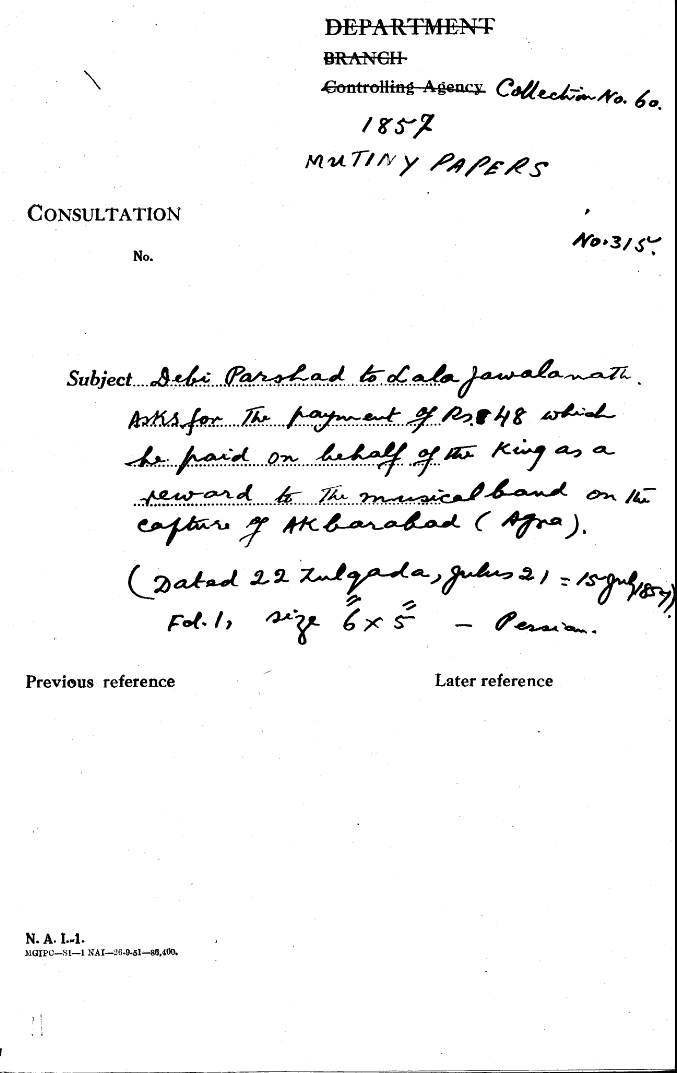 DEPARTMENT
BRANCH
Controlling Agency Collection No. 60.
1857
MUTINY PAPERS
CONSULTATION
No.
No. 315.
Subject Debi Parshad to Lala Jawalanath.
Asks for the payment of Rs. 48 which
he paid on behalf of the King as a
reward to the musical band on the
capture of Akbarabad (Agra).
(Dated 22 Zulqada, Julus 21 = 15 July 1857).
Fol. 1, size 6" x 5" — Persian.
Previous reference
Later reference
N. A. I.-1.
MGIPC—S1—1 NAI—26-9-51—86,400.